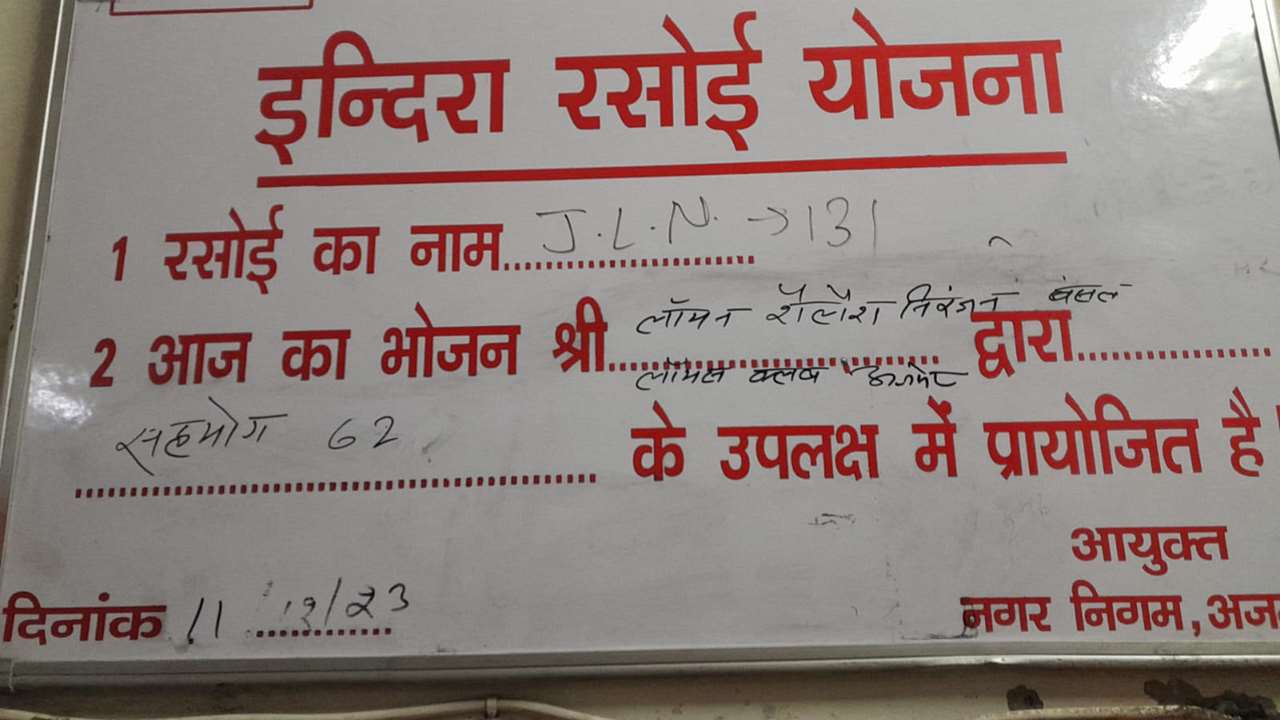 इन्दिरा रसोई योजना
1 रसोई का नाम J.L.N. → 131
लॉयन शैलेश निरंजन बंसल
2 आज का भोजन श्री द्वारा
लॉयंस क्लब
सहयोग 62
के उपलक्ष में प्रायोजित है
आयुक्त
दिनांक 11 12/23
नगर निगम, अज